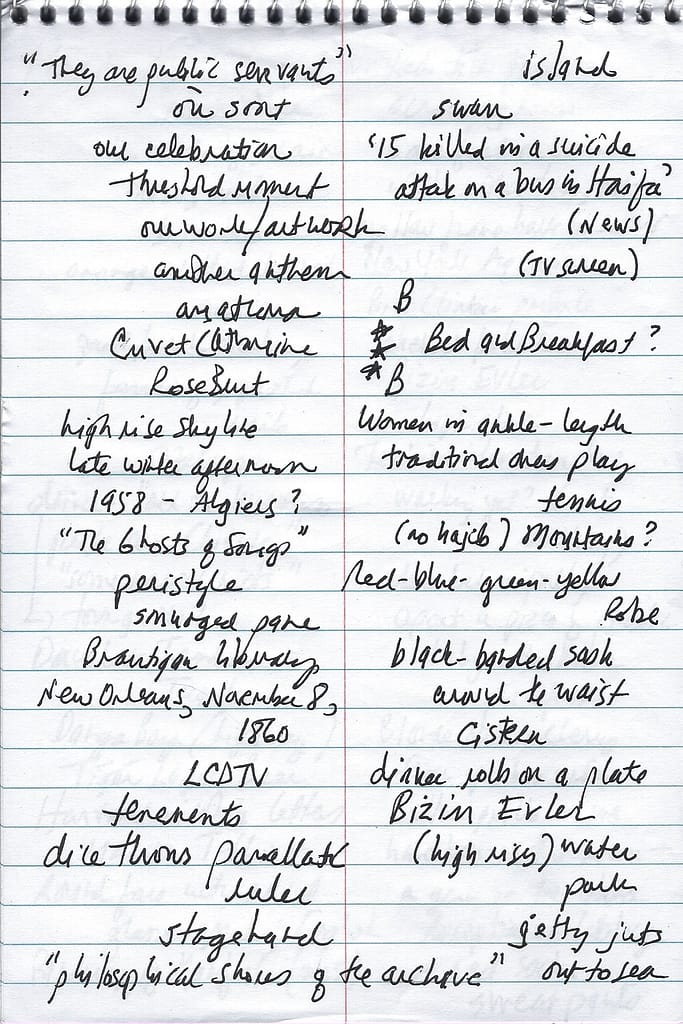 "They are public servants"
où sont
our celebration
threshold moment
our work/art work
another anthem
anathema
Cuvet Catherine
RoseBurt
high rise skyline
late winter afternoon
1958 - Algiers?
"The Ghosts of Songs"
peristyle
smudged pane
Brautigan library
New Orleans, November 8,
1860
LCDTV
tenements
dice throws parallax
ruler
stagehand
"philosophical shores of the archive"
island
swan
'15 killed in a suicide
attak on a bus in Haifa'
(News)
(TV screen)
B
Bed and Breakfast?
B
Women in ankle-length
traditional dress play
tennis
(no hajib) Mountains?
Red-blue-green-yellow
Robe
black-banded sash
around the waist
Cistern
dinner rolls on a plate
Bizim Evler
(high rises) water
park
jetty juts
out to sea